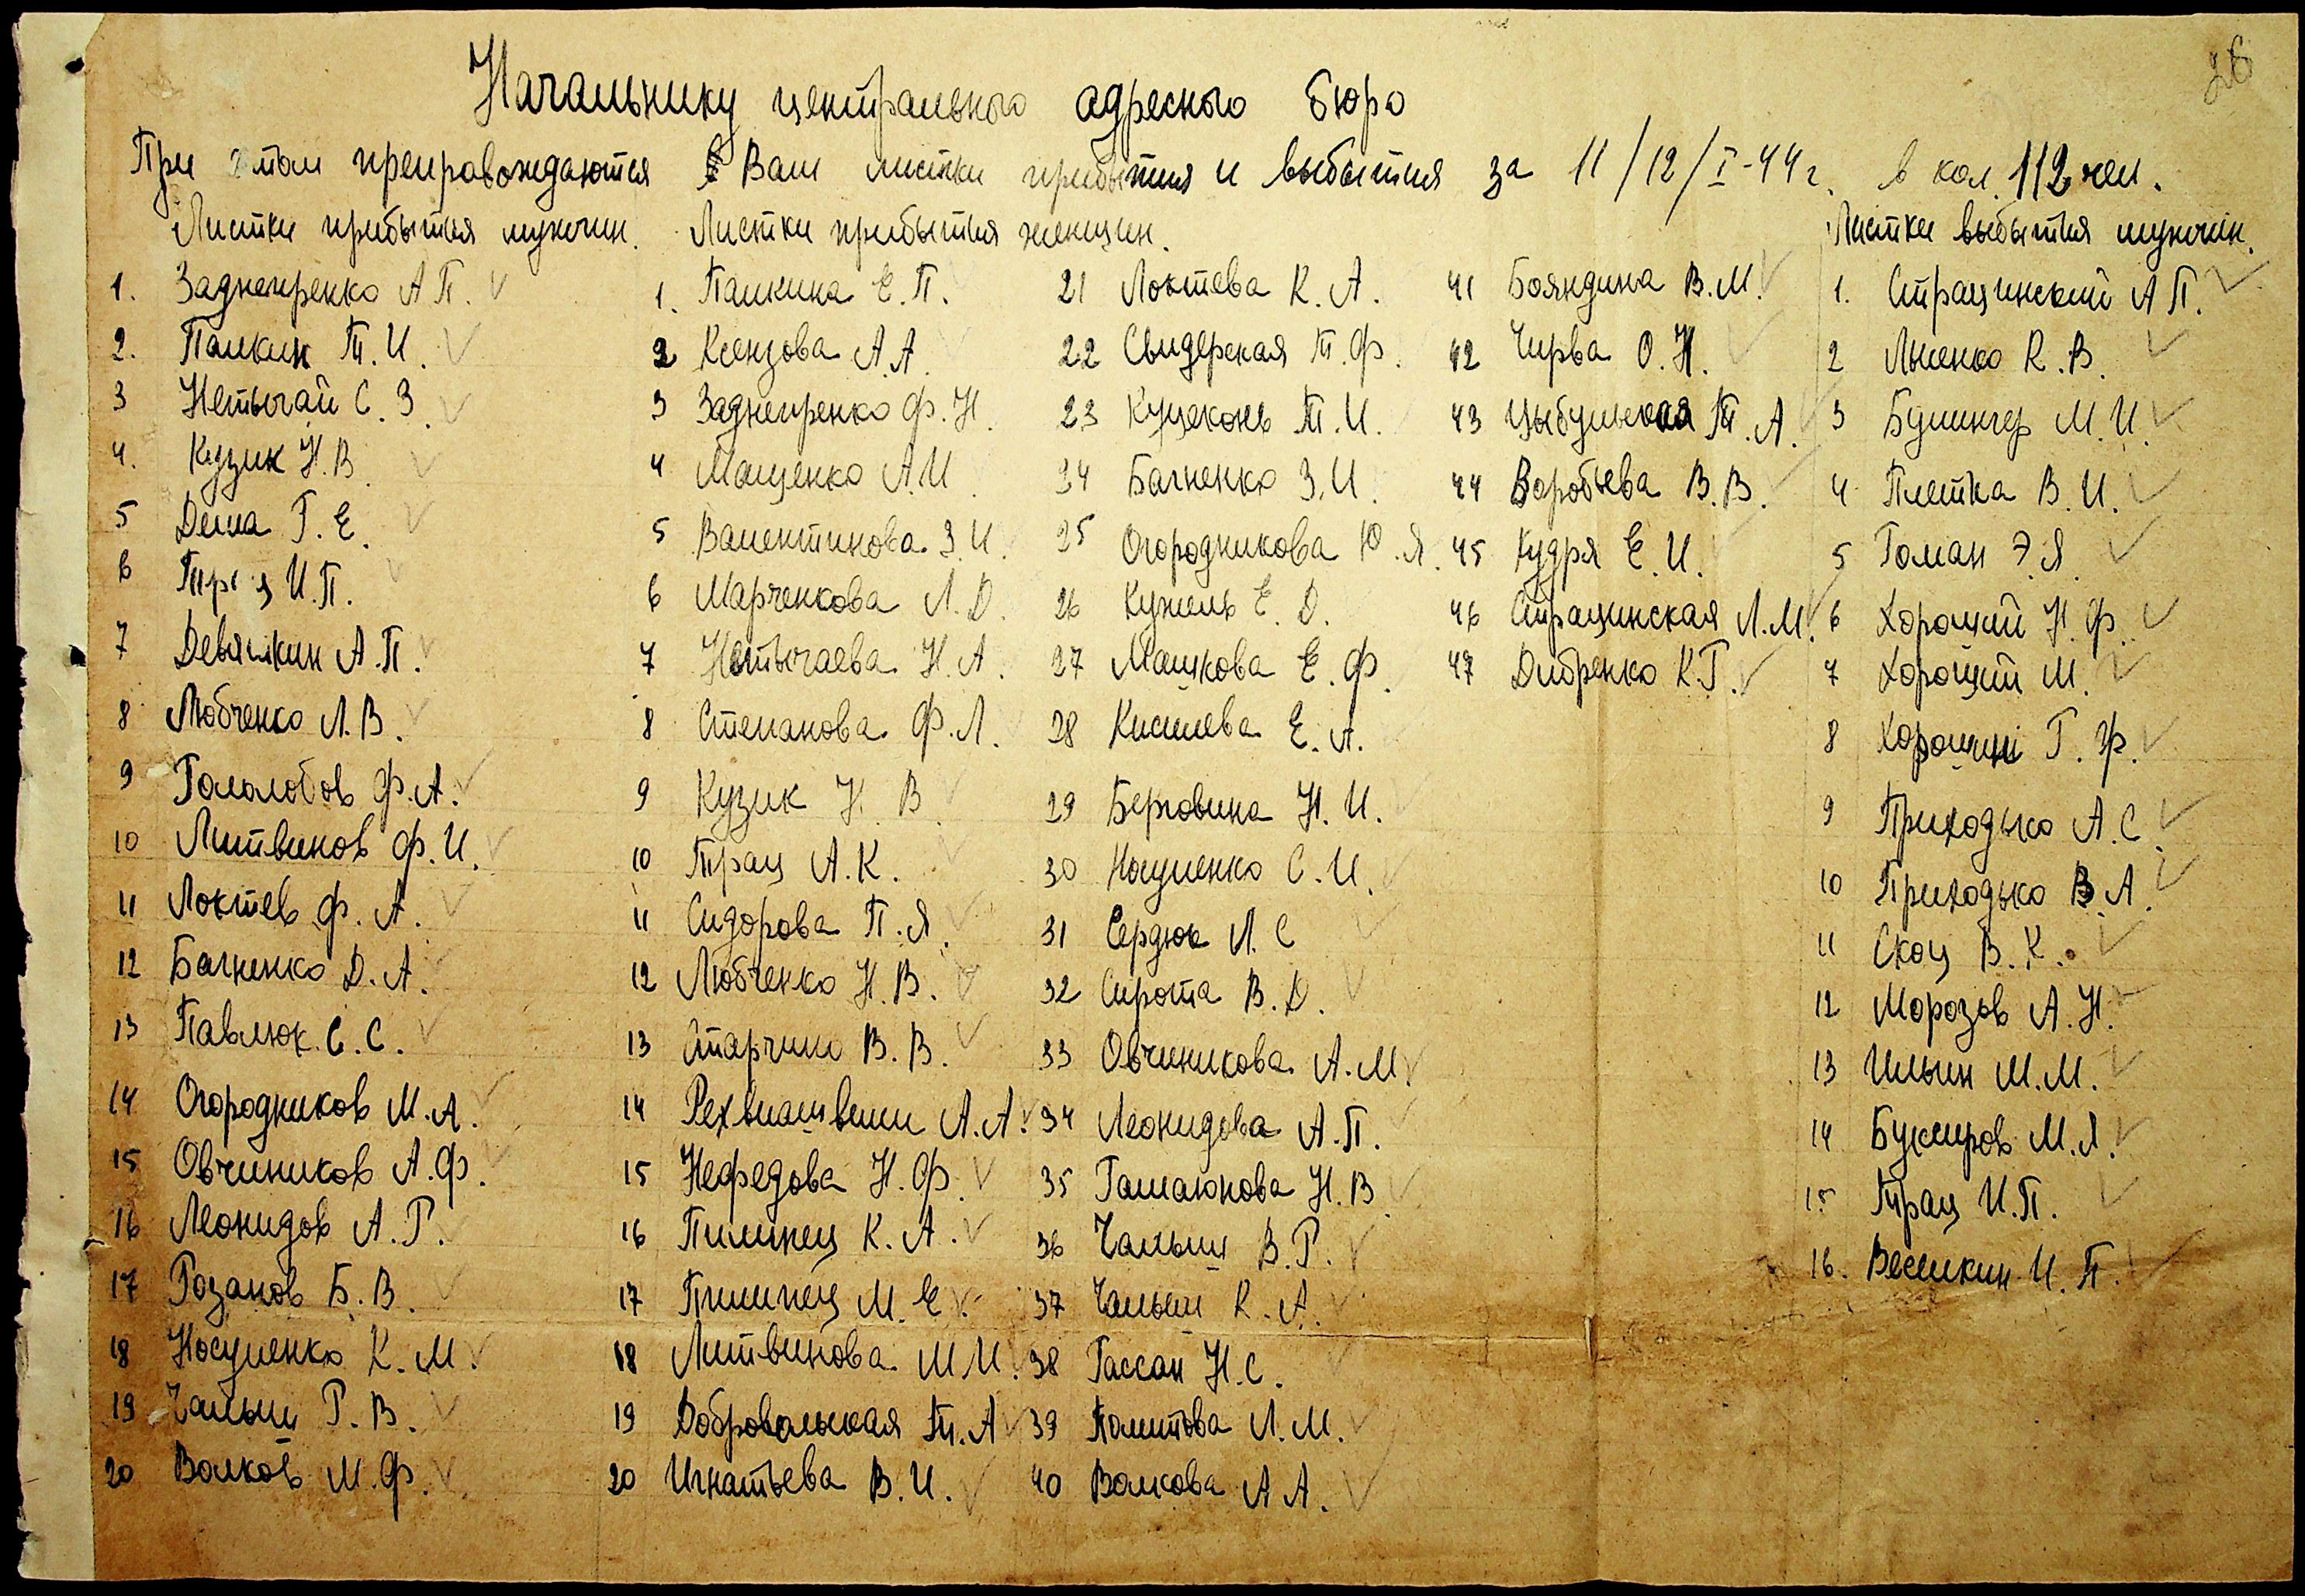 26
Начальнику центрального адресного бюро
При этом препровождаются Вам листки прибытия и выбытия за 11/12/I-44 г. в кол. 112 чел.
Листки прибытия мужчин.
1. Заднепренко А.П.
2. Палкин Т.И.
3 Нетычай С.З.
4. Кузик Н.В.
5 Дема Г.Е.
6 И.П.
7 Девяткин А.П.
8 Любченко Л.В.
9 Гололобов Ф.А.
10 Литвинов Ф.И.
11 Локтев Ф.А.
12 Багненко Д.А.
13 Павлюк С.С.
14 Огородников М.А.
15 Овчиников А.Ф.
16 Леонидов А.Г.
17 Розанов Б.В.
18 Носуленко К.М.
19 Чалыш Р.В.
20 Волков М.Ф.
Листки прибытия женщин.
1. Палкина Е.П.
2 Ксензова А.А.
3 Заднепренко Ф.Н.
4 Мащенко А.И.
5 Валентинова З.И.
6 Марченкова Л.Д.
7 Нетычаева Н.А.
8 Степанова Ф.Л.
9 Кузик Н.В.
10 Трац А.К.
11 Сидорова П.Я.
12 Любченко Н.В.
13 В.В.
14 Рехвиашвили А.А.
15 Нефедова Н.Ф.
16 Пилипец К.А.
17 Пилипец М.Е.
18 Литвинова М.И.
19 Добровольская Т.А.
20 Игнатьева В.И.
21 Локтева К.А.
22 Свидерская Т.Ф.
23 Куцеконь Т.И.
24 Багненко З.И.
25 Огородникова Ю.Я.
26 Кужель Е.Д.
27 Машкова Е.Ф.
28 Киселева Е.А.
29 Берговина Н.И.
30 Носуленко С.И.
31 Сердюк Л.С
32 Сирота В.Д.
33 Овчиникова А.М.
34 Леонидова А.П.
35 Н.В.
36 Чалыш В.Р.
37 Чалыш К.А.
38 Гассан Н.С.
39 Л.М.
40 Волкова А.А.
41 Бояндина В.М.
42 Чирва О.Н.
43 Цыбульская Т.А.
44 Воробьева В.В.
45 Кудря Е.И.
46 Страцинская Л.М.
47 Дибренко К.Г.
Листки выбытия мужчин.
1. Страцинский А.П.
2 Лысенко К.В.
3 М.И.
4 Плетка В.И.
5 Гоман Э.Я.
6 Хороший Н.Ф.
7 Хороший М.
8 Хороший Г.Ф.
9 Приходько А.С.
10 Приходько В.А.
11 Скоц В.К.
12 Морозов А.Н.
13 Ильин М.М.
14 М.Л.
15 Трац И.П.
16. Веселкин И.П.